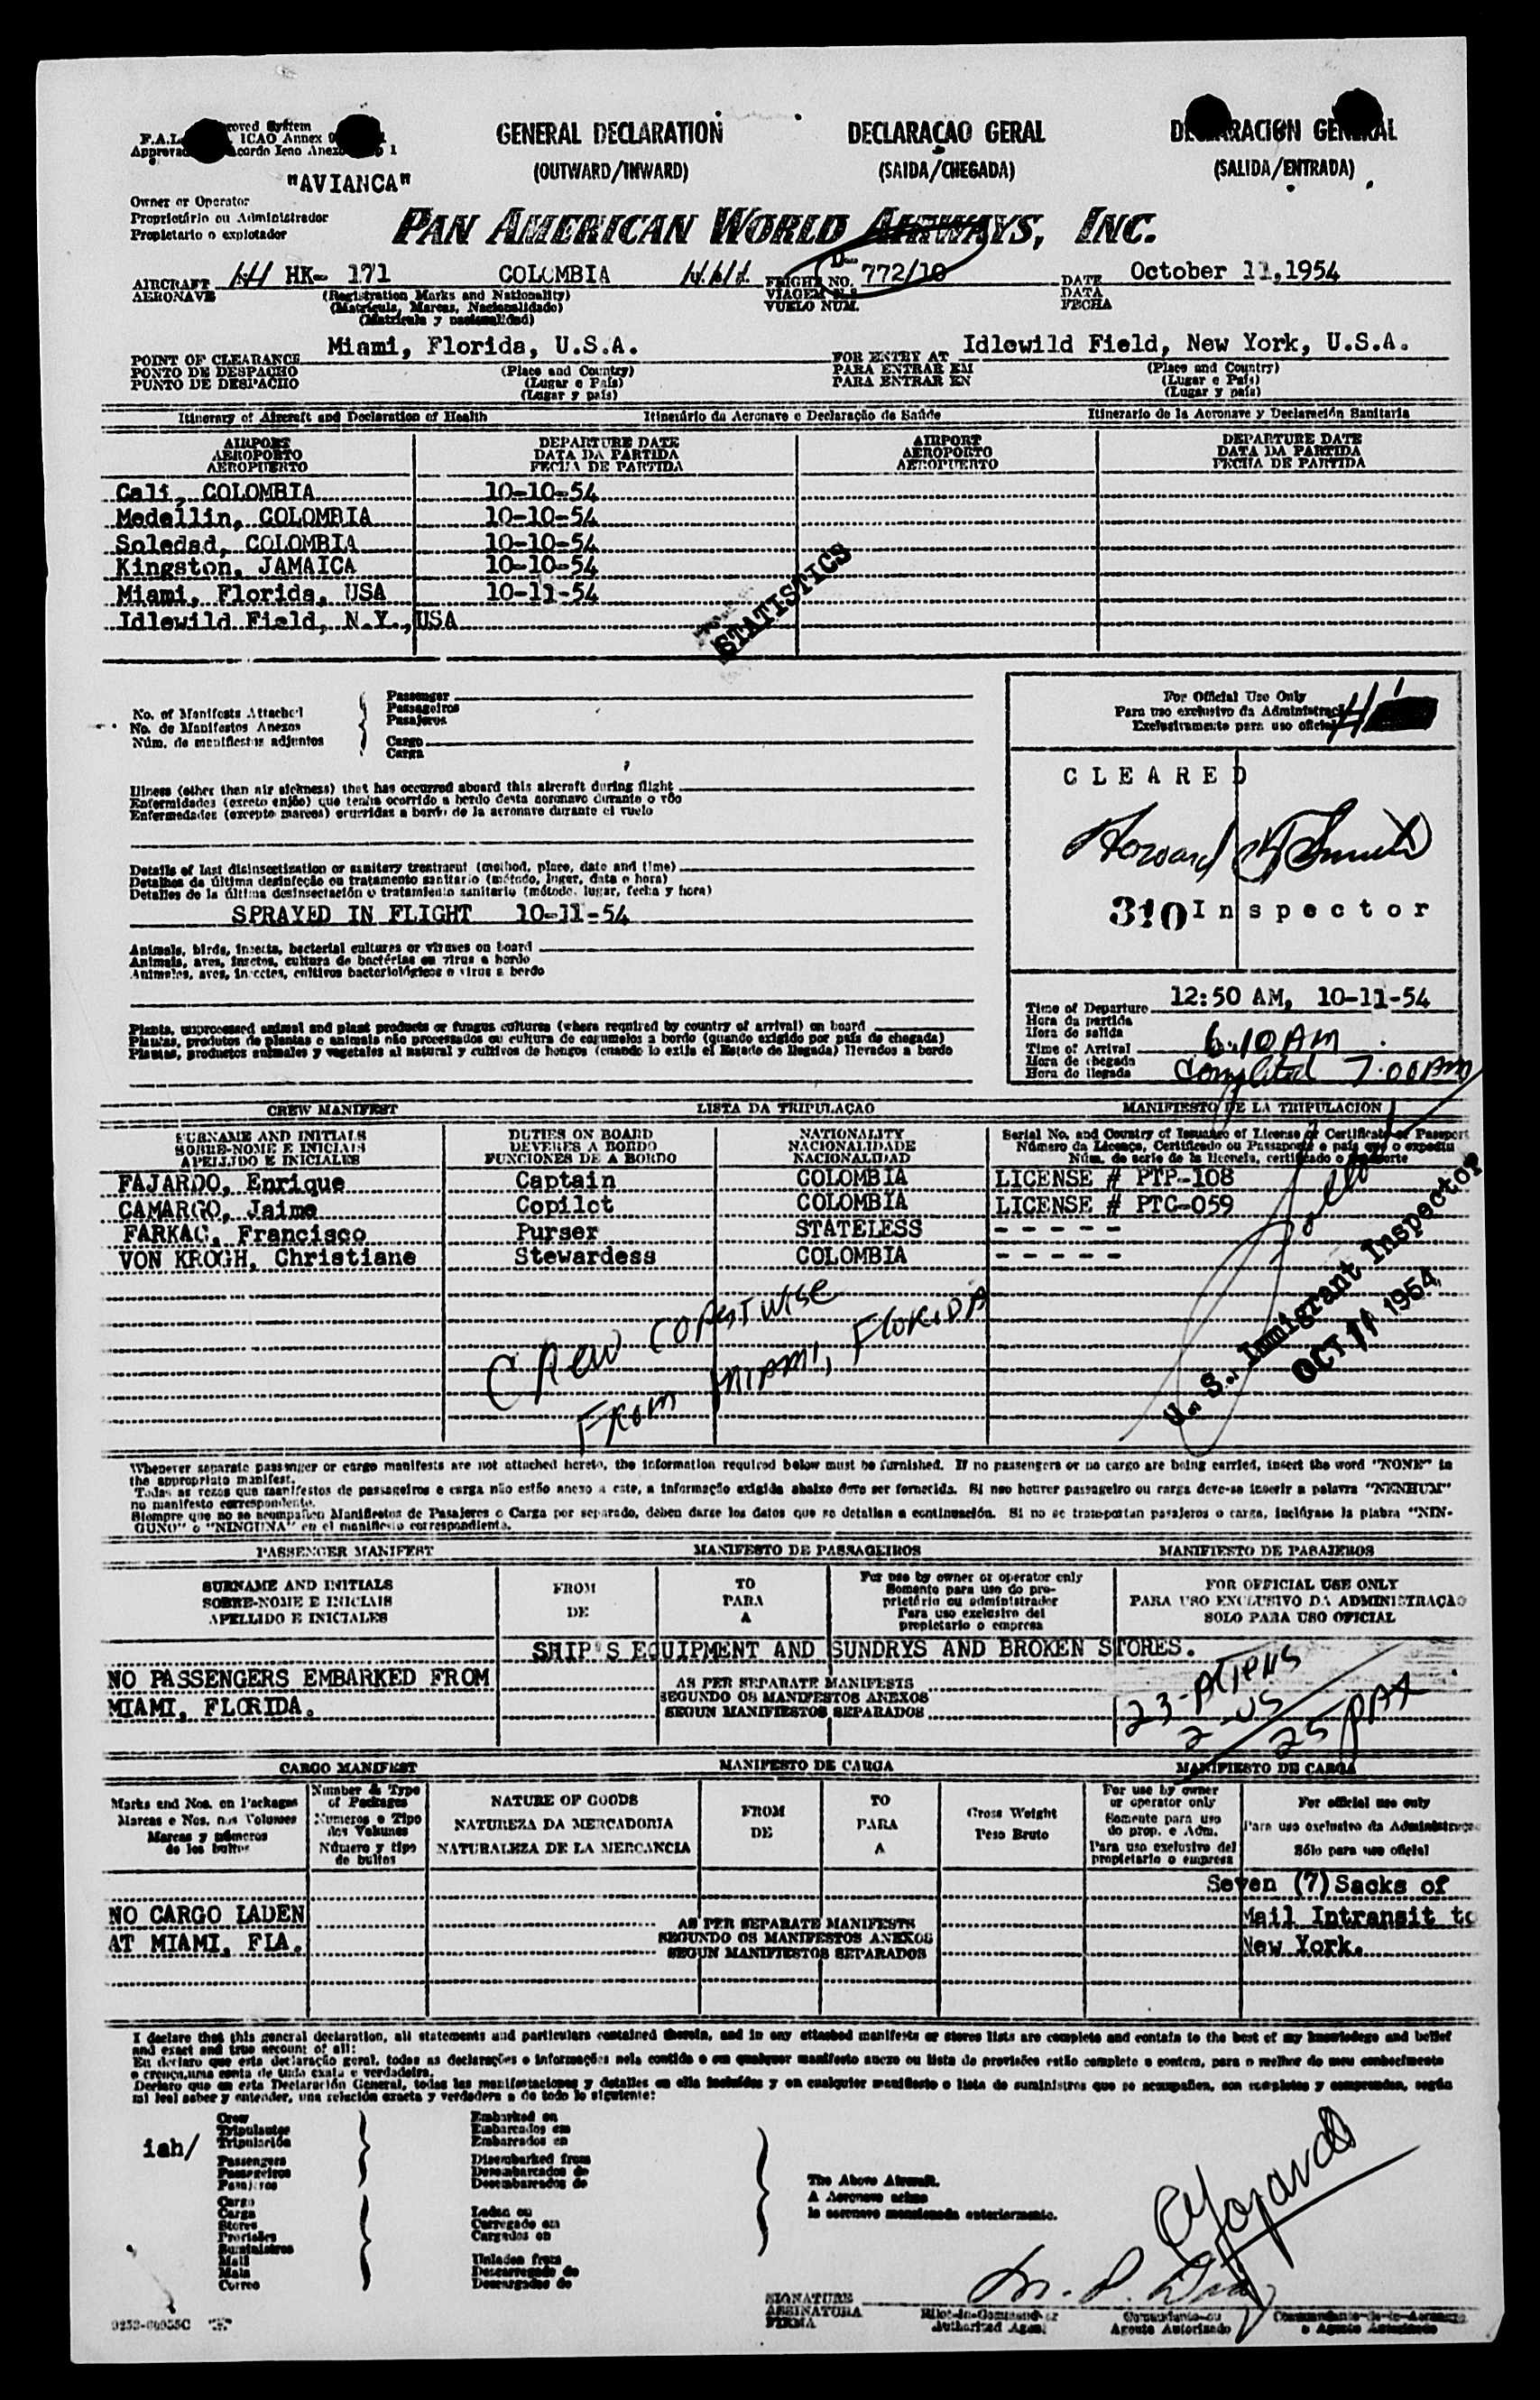 GENERAL DECLARATION
(OUTWARD/INWARD)
DECLARAÇAO GERAL
(SAIDA/CHEGADA)
(SALIDA/ENTRADA)
"AVIANCA"
Owner or Operator
Proprietário ou Administrador
Propietario o explotador
PAN AMERICAN WORLD AIRWAYS, INC.
AIRCRAFT HK- 171 COLOMBIA FLIGHT NO. 772/10 DATE October 11,1954
AERONAVE (Registration Marks and Nationality) VIAGEM N.º DATA
(Matrícula, Marcas, Nacionalidade) VUELO NUM. FECHA
(Matrícula y nacionalidad)
POINT OF CLEARANCE Miami, Florida, U.S.A. FOR ENTRY AT Idlewild Field, New York, U.S.A.
PONTO DE DESPACHO (Place and Country) PARA ENTRAR EM (Place and Country)
PUNTO DE DESPACHO (Lugar e País) PARA ENTRAR EN (Lugar e País)
(Lugar y país) (Lugar y país)
Itinerary of Aircraft and Declaration of Health Itinerário da Aeronave e Declaração de Saúde Itinerario de la Aeronave y Declaración Sanitaria
AIRPORT DEPARTURE DATE AIRPORT DEPARTURE DATE
AEROPORTO DATA DA PARTIDA AEROPORTO DATA DA PARTIDA
AEROPUERTO FECHA DE PARTIDA AEROPUERTO FECHA DE PARTIDA
Cali, COLOMBIA 10-10-54
Medellin, COLOMBIA 10-10-54
Soledad, COLOMBIA 10-10-54
Kingston, JAMAICA 10-10-54
Miami, Florida, USA 10-11-54
Idlewild Field, N.Y., USA
STATISTICS
No. of Manifests Attached
No. de Manifestos Anexos
Núm. de manifiestos adjuntos
Passenger
Passageiros
Pasajeros
Cargo
Carga
For Official Use Only
Para uso exclusivo da Administração
Exclusivamente para uso oficial
CLEARED
Howard Smith
310 Inspector
Illness (other than air sickness) that has occurred aboard this aircraft during flight
Enfermidades (exceto enjôo) que tenha ocorrido a bordo desta aeronave durante o vôo
Enfermedades (excepto mareos) ocurridas a bordo de la aeronave durante el vuelo
Details of last disinsectization or sanitary treatment (method, place, date and time)
Detalhes da última desinfeção ou tratamento sanitario (método, lugar, data e hora)
Detalles de la última desinsectación o tratamiento sanitario (método, lugar, fecha y hora)
SPRAYED IN FLIGHT 10-11-54
Animals, birds, insects, bacterial cultures or viruses on board
Animais, aves, insetos, cultura de bactérias ou virus a bordo
Animales, aves, insectos, cultivos bacteriológicos o virus a bordo
Plants, unprocessed animal and plant products or fungus cultures (where required by country of arrival) on board
Plantas, produtos de plantas e animais não processados ou cultura de cogumelos a bordo (quando exigido por país de chegada)
Plantas, productos animales y vegetales al natural y cultivos de hongos (cuando lo exija el Estado de llegada) llevados a bordo
Time of Departure 12:50 AM, 10-11-54
Hora da partida
Hora de salida
Time of Arrival 6:10 AM
Hora de chegada
Hora de llegada Completed 7:00 AM
CREW MANIFEST LISTA DA TRIPULAÇAO MANIFIESTO DE LA TRIPULACION
SURNAME AND INITIALS DUTIES ON BOARD NATIONALITY Serial No. and Country of Issuance of License or Certificate or Passport
SOBRE-NOME E INICIAIS DEVERES A BORDO NACIONALIDADE Número da Licença, Certificado ou Passaporte e país que o expediu
APELLIDO E INICIALES FUNCIONES DE A BORDO NACIONALIDAD Núm. de serie de la licencia, certificado o pasaporte
FAJARDO, Enrique Captain COLOMBIA LICENSE # PTP-108
CAMARGO, Jaime Copilot COLOMBIA LICENSE # PTC-059
FARKAC, Francisco Purser STATELESS - - - - -
VON KROGH, Christiane Stewardess COLOMBIA - - - - -
CREW COASTWISE
FROM MIAMI, FLORIDA
U. S. Immigrant Inspector
OCT 11 1954
Whenever separate passenger or cargo manifests are not attached hereto, the information required below must be furnished. If no passengers or no cargo are being carried, insert the word "NONE" in
the appropriate manifest.
Todas as vezes que manifestos de passageiros e carga não estão anexo a este, a informação exigida abaixo deve ser fornecida. Si nao houver passageiro ou carga deve-se inserir a palavra "NENHUM"
no manifesto correspondente.
Siempre que no se acompañen Manifiestos de Pasajeros o Carga por separado, deben darse los datos que se detallan a continuación. Si no se transportan pasajeros o carga, inclúyase la plabra "NIN-
GUNO" o "NINGUNA" en el manifiesto correspondiente.
PASSENGER MANIFEST MANIFESTO DE PASSAGEIROS MANIFIESTO DE PASAJEROS
SURNAME AND INITIALS FROM TO For use by owner or operator only FOR OFFICIAL USE ONLY
SOBRE-NOME E INICIAIS DE PARA Somente para uso do pro- PARA USO EXCLUSIVO DA ADMINISTRAÇAO
APELLIDO E INICIALES A prietário ou administrador SOLO PARA USO OFICIAL
Para uso exclusivo del
propietario o empresa
SHIP'S EQUIPMENT AND SUNDRYS AND BROKEN STORES.
NO PASSENGERS EMBARKED FROM AS PER SEPARATE MANIFESTS
SEGUNDO OS MANIFESTOS ANEXOS
MIAMI, FLORIDA. SEGUN MANIFIESTOS SEPARADOS
23-ALIENS
2-US
25 PAX
CARGO MANIFEST MANIFESTO DE CARGA MANIFIESTO DE CARGA
Marks and Nos. on Packages
Marcas e Nos. nos Volumes
Marcas y números
de los bultos
Number & Type
of Packages
Numeros e Tipo
dos Volumes
Número y tipo
de bultos
NATURE OF GOODS
NATUREZA DA MERCADORIA
NATURALEZA DE LA MERCANCIA
FROM
DE
TO
PARA
A
Gross Weight
Peso Bruto
For use by owner
or operator only
Somente para uso
do prop. e Adm.
Para uso exclusivo del
propietario o empresa
For official use only
Para uso exclusivo da Administração
Sólo para uso oficial
Seven (7) Sacks of
Mail Intransit to
New York.
NO CARGO LADEN
AT MIAMI, FLA.
AS PER SEPARATE MANIFESTS
SEGUNDO OS MANIFESTOS ANEXOS
SEGUN MANIFIESTOS SEPARADOS
I declare that this general declaration, all statements and particulars contained therein, and in any attached manifests or stores lists are complete and contain to the best of my knowledge and belief
and exact and true account of all:
Eu declaro que esta declaração geral, todas as declarações e informações nela contida e em qualquer manifesto anexo ou lista de provisões estão completo e contem, para o melhor do meu conhecimento
e crença,uma conta de tudo exata e verdadeira.
Declaro que en esta Declaración General, todas las manifestaciones y detalles en ella incluídas y en cualquier manifiesto o lista de suministros que se acompañen, son completos y comprenden, según
mi leal saber y entender, una relación exacta y verdadera a de todo lo siguiente:
iah/
Crew
Tripulantes
Tripulación
Passengers
Passageiros
Pasajeros
Cargo
Carga
Stores
Provisões
Suministros
Mail
Mala
Correo
Embarked on
Embarcados em
Embarcados en
Disembarked from
Desembarcados de
Desembarcados de
Laden on
Carregado em
Cargados en
Unladen from
Descarregado de
Descargados de
The Above Aircraft.
A Aeronave acima
la aeronave mencionada anteriormente.
SIGNATURE
ASSINATURA
FIRMA
Pilot-in-Command or
Authorized Agent
Comandante ou
Agente Autorizado
Commandante de la Aeronave
o Agente Autorizado